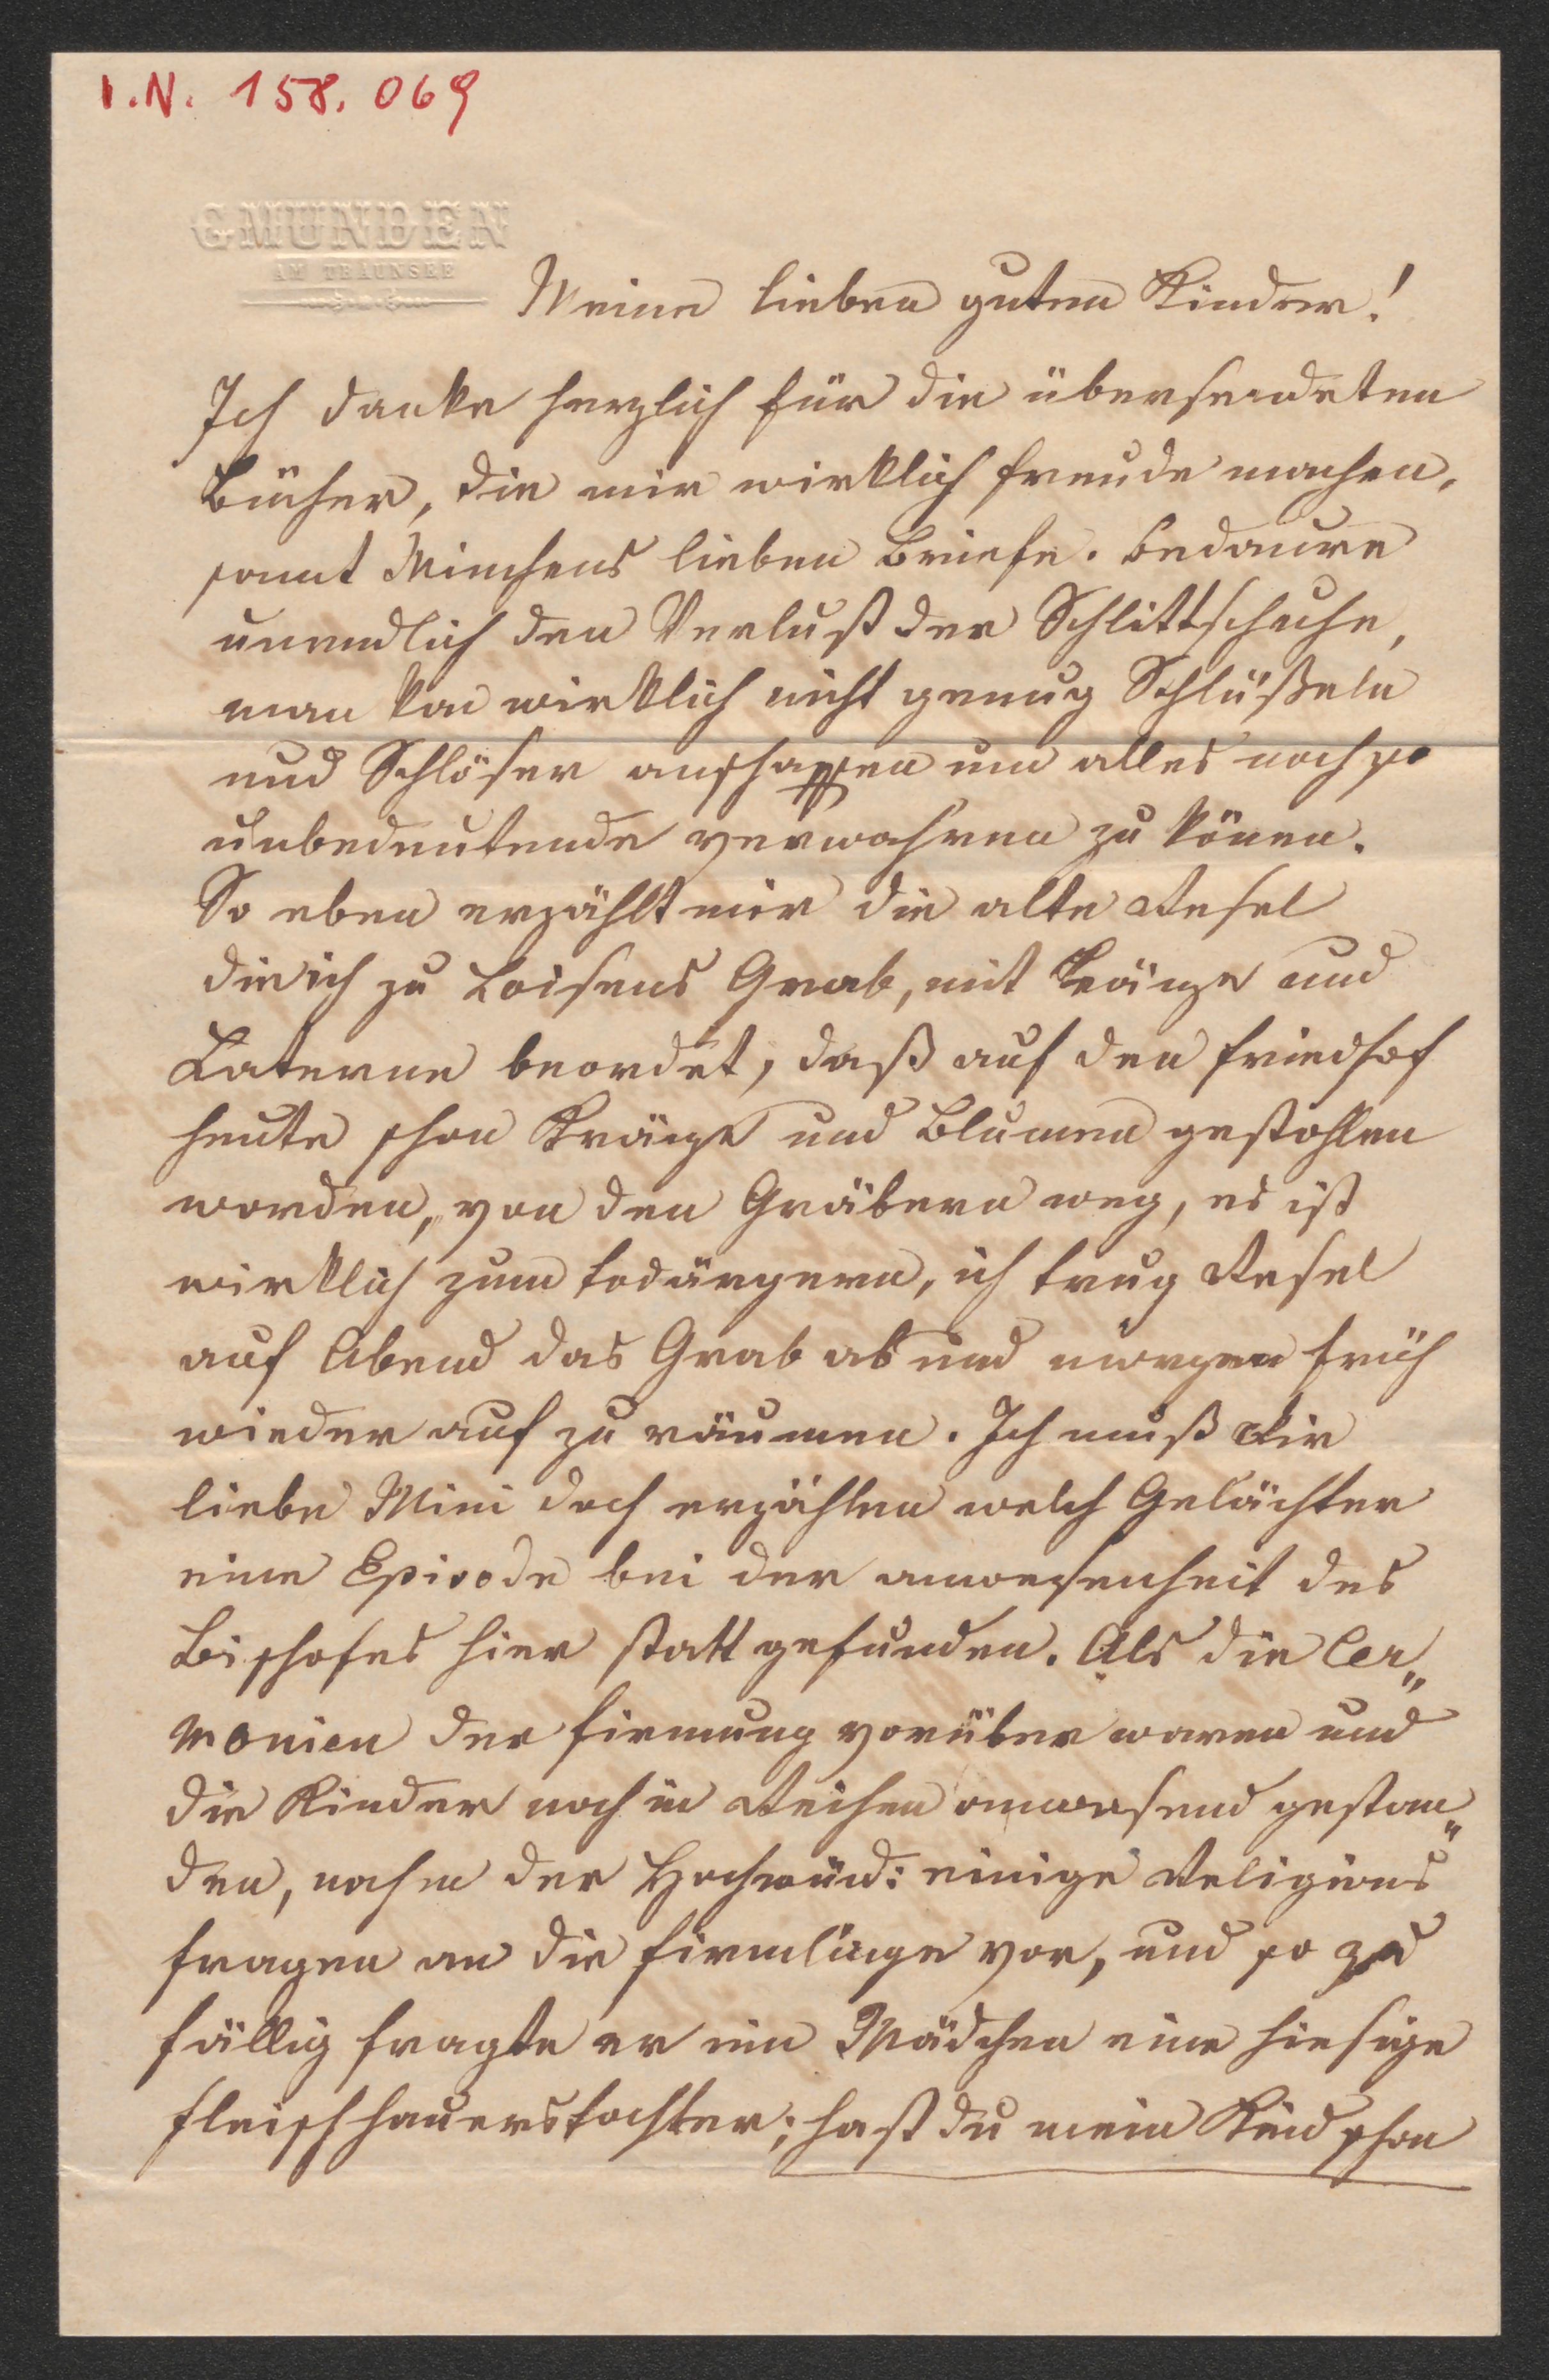 I.N. 158.069
GMUNDEN
AM TRAUNSEE
Meine lieben guten Kinder!
Ich danke herzlich für die übersendeten
Bücher, die mir wirklich Freude machen,
samt Minchens lieben Briefe. Bedaure
unendlich den Verlust der Schlittschuhe,
man kan wirklich nicht genug Schlüßeln
und Schlößer anschaffen um alles noch so
unbedeutende verwahren zu könen.
So eben erzählt mir die alte Resel
die ich zu Loisens Grab, mit Kränze und
Laterne beordet, daß auf den Friedhof
heute schon Kränze und Blumen gestohlen
worden, von den Gräbern weg, es ist
wirklich zum todärgern, ich trug Resel
auf Abend das Grab ab und morgen früh
wieder auf zu räumen. Ich muß Dir
liebe Mini doch erzählen welch Gelächter
eine Episode bei der anwesenheit des
Bischofes hier statt gefunden. Als die Cer„
monien der Firmung vorüber waren und
die Kinder noch in Reihen anwesend gestan„
den, nahm der Hochwürd: einige Religions
fragen an die Firmlinge vor, und so zu
fällig fragte er ein Mädchen eine hiesige
Fleischhauerstochter; hast du mein Kind schon